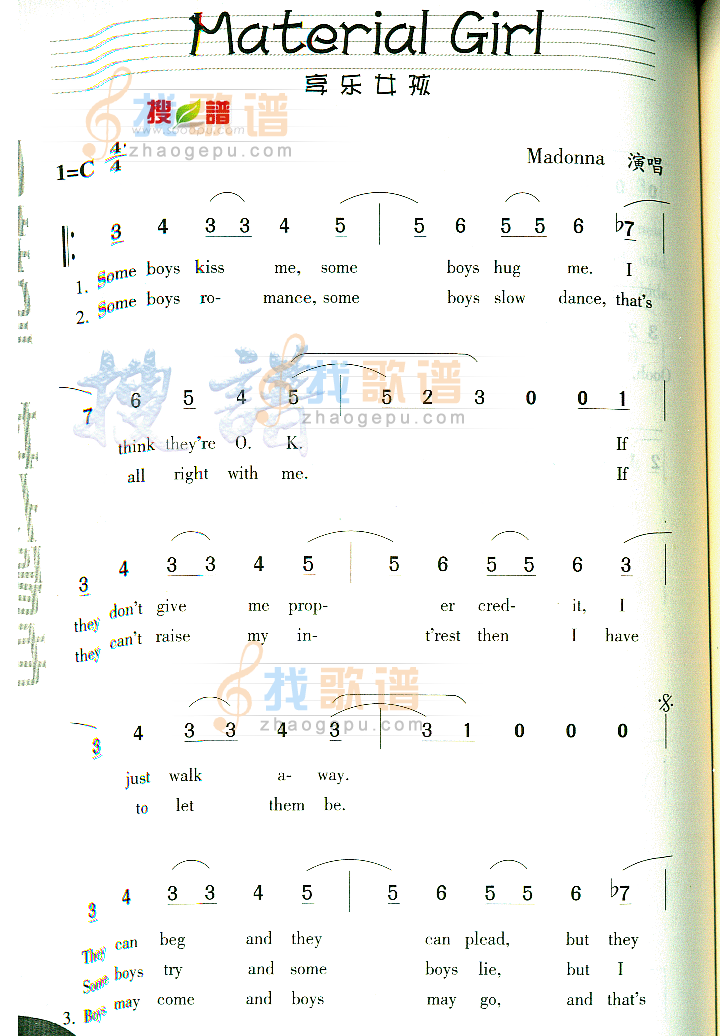 Material Girl
享乐女孩
搜谱
www.sooopu.com
找歌谱
zhaogepu.com
1=C 4/4
Madonna 演唱
3 4 3 3 4 5 | 5 6 5 5 6 ♭7
1. Some boys kiss me, some boys hug me. I
2. Some boys ro- mance, some boys slow dance, that's
搜譜
找歌谱
zhaogepu.com
7 6 5 4 5 | 5 2 3 0 0 1 |
think they're O. K. If
all right with me. If
3 4 3 3 4 5 | 5 6 5 5 6 3 |
they don't give me prop- er cred- it, I
they can't raise my in- t'rest then I have
找歌谱
zhaogepu.com
3 4 3 3 4 3 | 3 1 0 0 0 |
just walk a- way.
to let them be.
找歌谱
zhaogepu.com
3 4 3 3 4 5 | 5 6 5 5 6 ♭7 |
They can beg and they can plead, but they
Some boys try and some boys lie, but I
3. Boys may come and boys may go, and that's